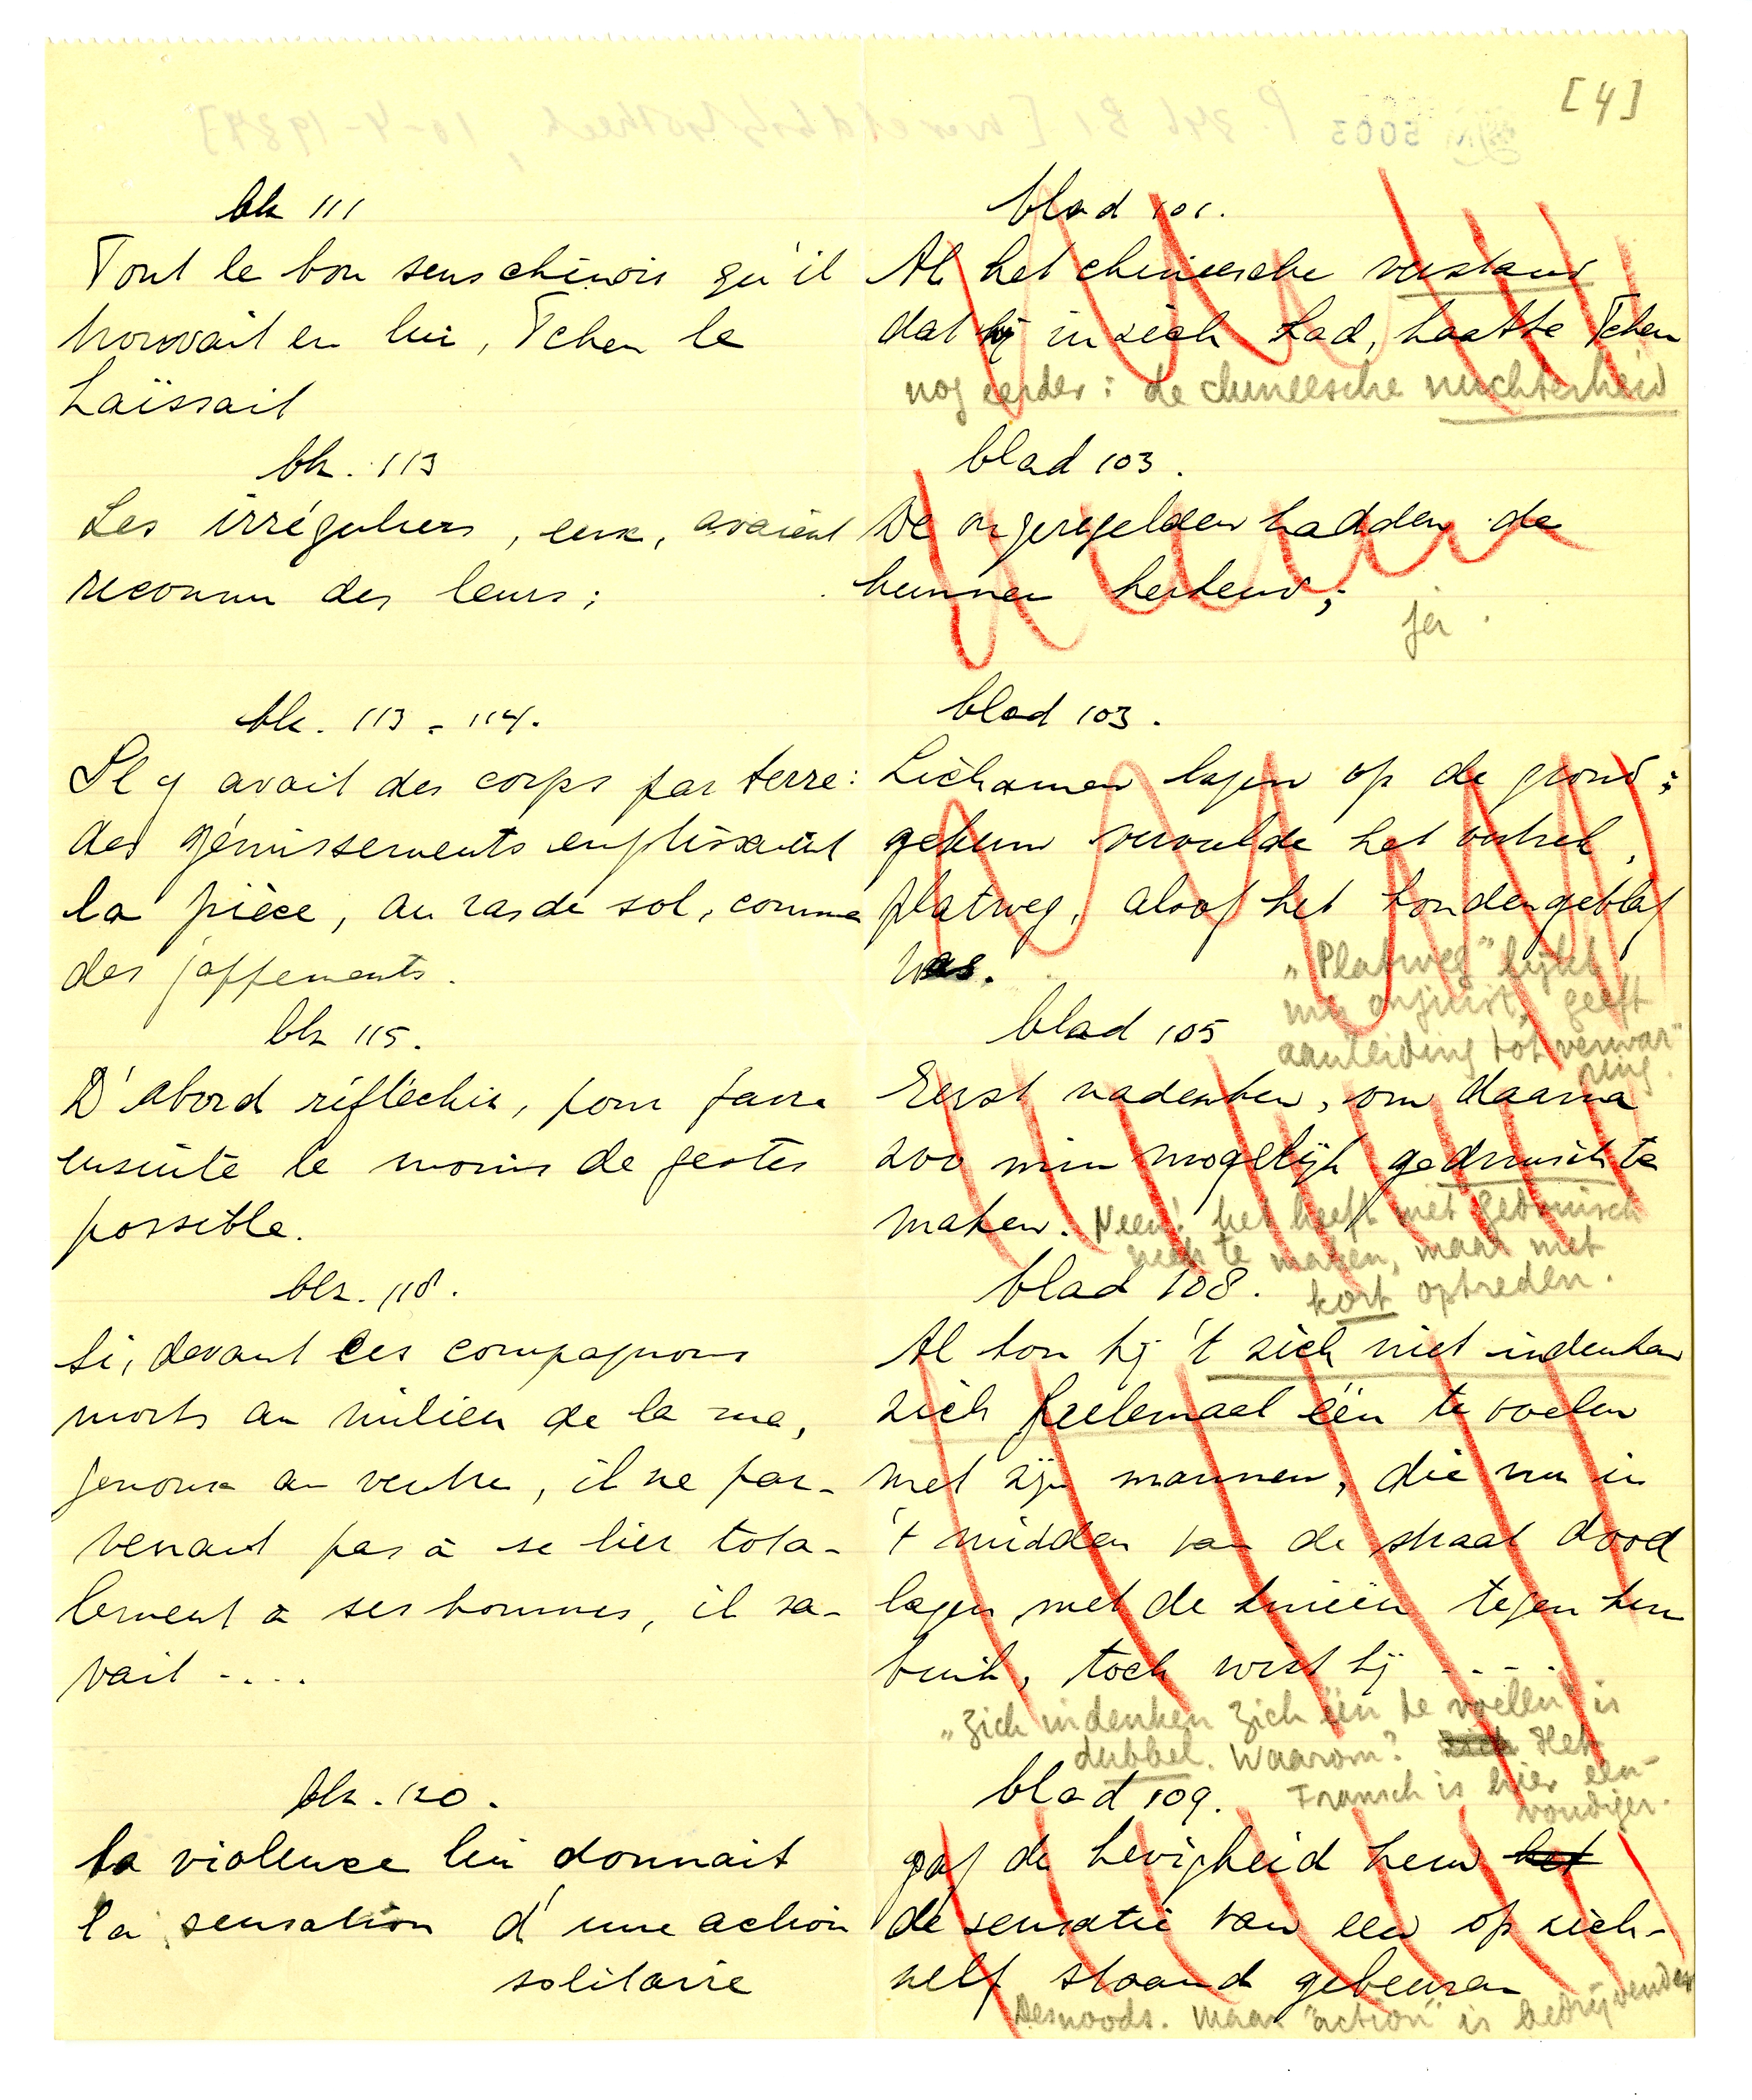 [4]
blz 111
Tout le bon sens chinois qu'il
trouvait en lui, Tchen le
haïssait
blad 101.
Al het chineesche verstand
dat hij in zich had, haatte Tchen
nog eerder: de chineesche nuchterheid
blz. 113
Les irréguliers, eux, avaient
reconnu des leurs;
blad 103.
De ongeregelden hadden de
hunnen herkend;
ja.
blz. 113-114.
Il y avait des corps par terre:
des gémissements emplissaient
la pièce, au ras de sol, comme
des jappements.
blad 103.
Lichamen lagen op de grond;
gekerm vervulde het vertrek,
platweg, alsof het hondengeblaf
was.
"Platweg" lijkt
me onjuist, geeft
aanleiding tot verwar"
ring.
blz 115.
D'abord réfléchir, pour faire
ensuite le moins de gestes
possible.
blad 105
Eerst nadenken, om daarna
zoo min mogelijk gedruisch te
maken. Neen! het heeft met gedruisch
niets te maken, maar met
kort optreden.
blz. 118.
Si, devant ces compagnons
morts au milieu de la rue,
genoux au ventre, il ne par-
venait pas à se lier tota-
lement à ses hommes, il sa-
vait ....
blad 108.
Al kon hij 't zich niet indenken
zich heelemaal één te voelen
met zijn mannen, die nu in
't midden van de straat dood
lagen, met de knieën tegen hun
buik, toch wist hij ....
"Zich indenken zich één te voelen" is
dubbel. Waarom? Het
Fransch is hier een-
voudiger.
blz. 120.
la violence lui donnait
la sensation d'une action
solitaire
blad 109.
gaf de hevigheid hem het
de sensatie van een op zich-
zelf staand gebeuren
Desnoods. Maar "action" is bedrijvender